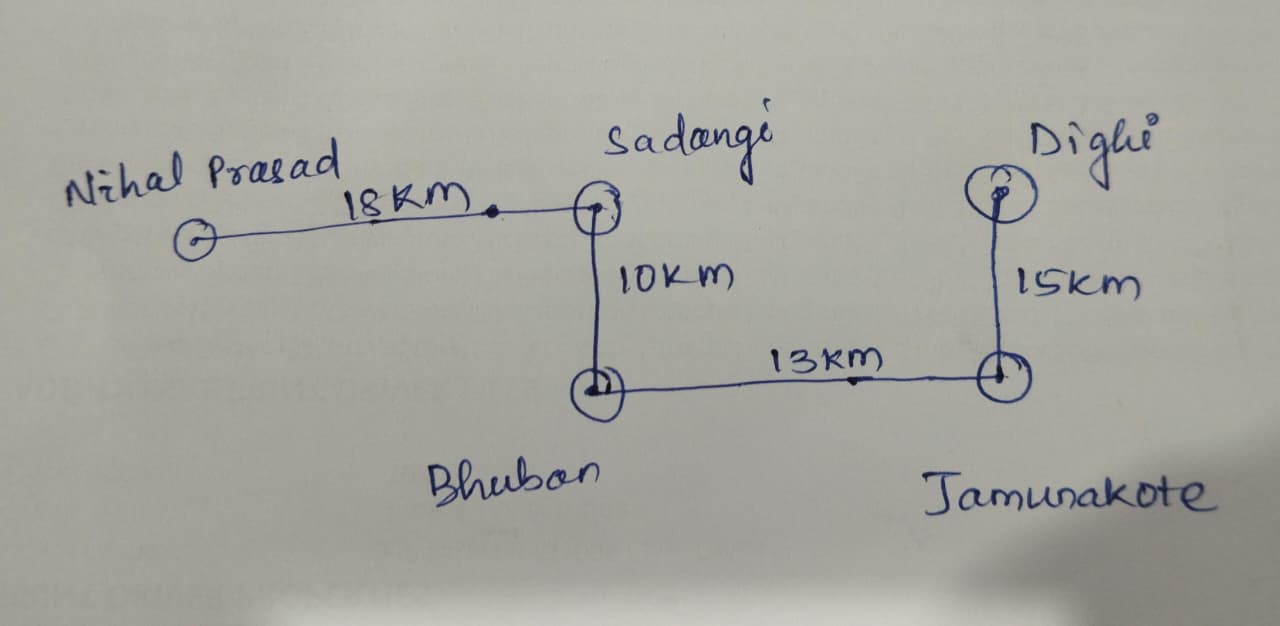 Nihal Prasad
18KM
Sadangi
Dighi
10KM
15KM
13KM
Bhuban
Jamunakote